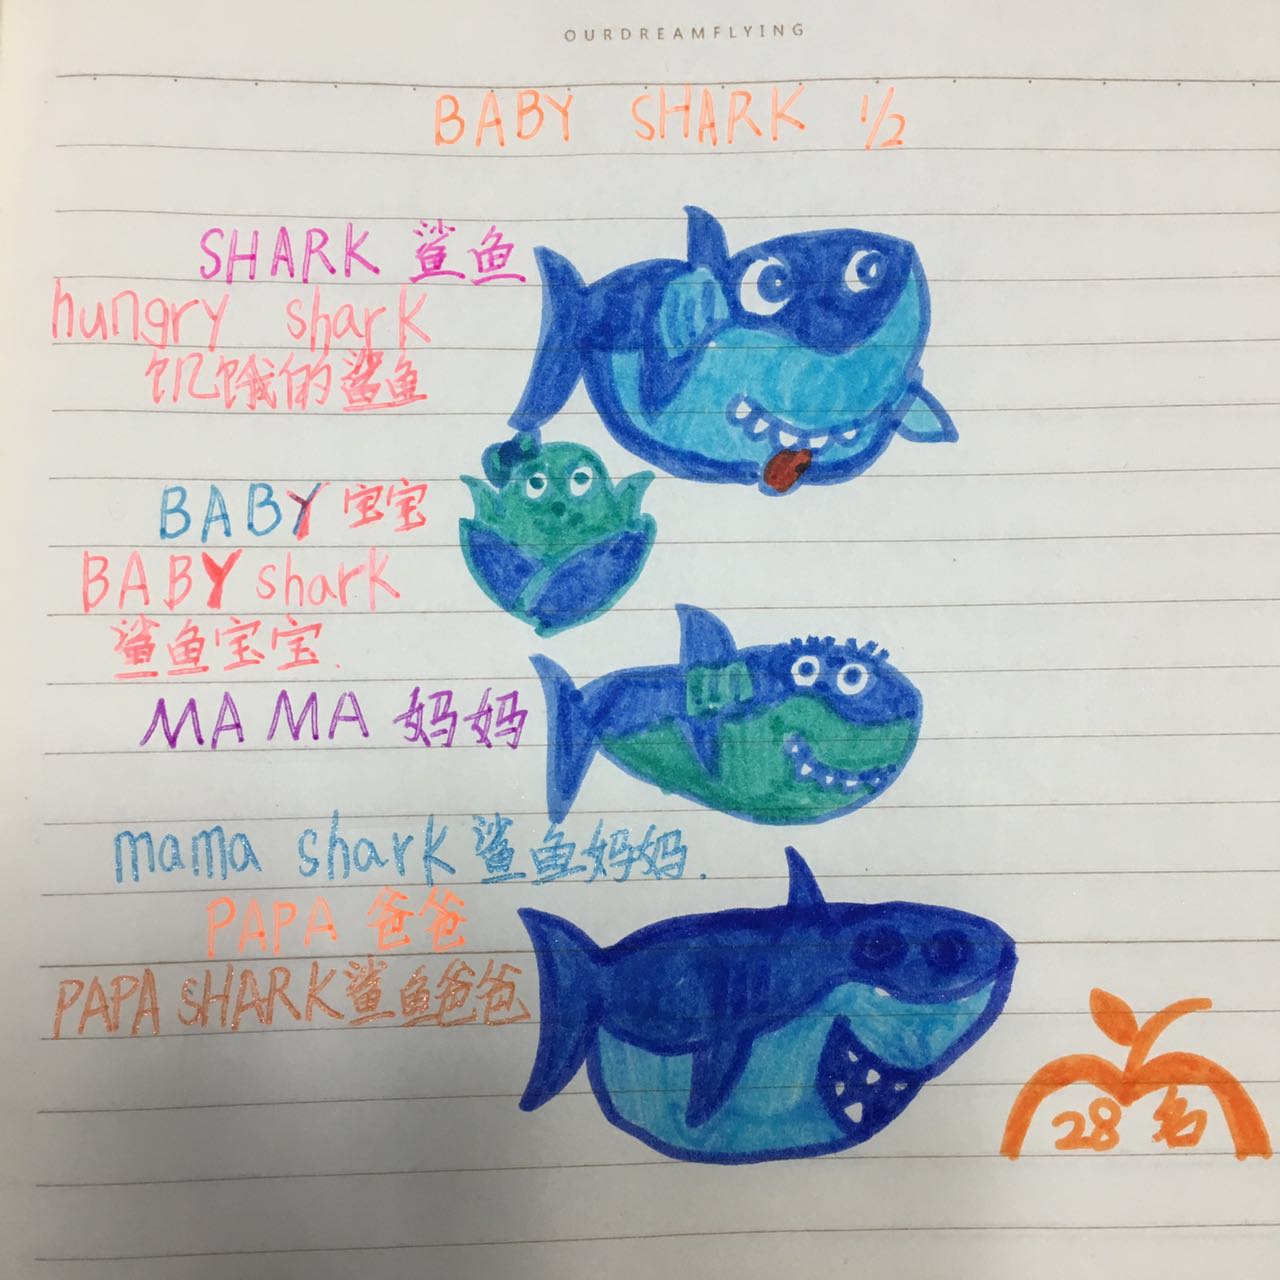 OURDREAMFLYING
BABY SHARK 1/2
SHARK 鲨鱼
hungry shark
饥饿的鲨鱼
BABY 宝宝
BABY shark
鲨鱼宝宝.
MAMA 妈妈
mama shark 鲨鱼妈妈.
PAPA 爸爸
PAPA SHARK 鲨鱼爸爸
28名